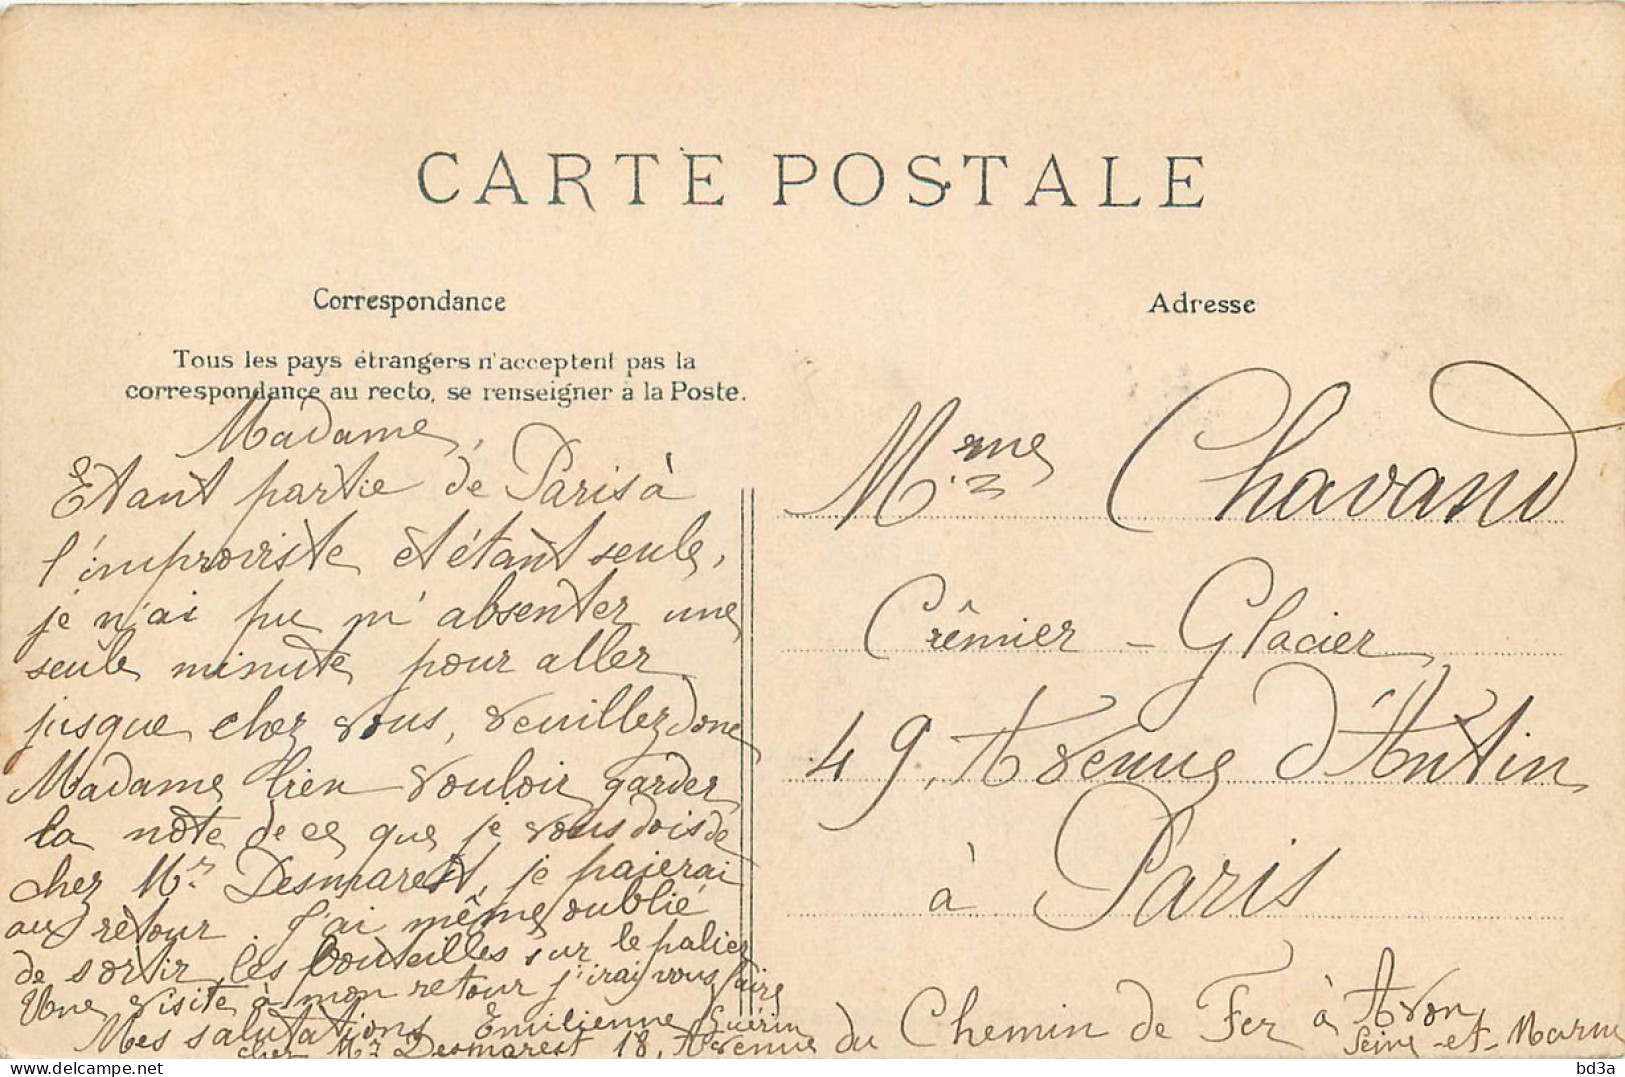 CARTE POSTALE
Correspondance
Tous les pays étrangers n'acceptent pas la
correspondance au recto, se renseigner à la Poste.
Madame,
Etant partie de Paris à
l'improviste et étant seule,
je n'ai pu m'absenter une
seule minute pour aller
jusque chez vous, veuillez donc
Madame bien vouloir garder
la note de ce que je vous dois de
chez Mr. Desmarest, je paierai
au retour. J'ai même oublié
de sortir les bouteilles sur le palier
Une visite à mon retour j'irai vous faire
Mes salutations Emilienne Guérin
chez Mr Desmarest 18, Avenue du Chemin de Fer à Avon
Seine-et-Marne
Adresse
Mme Chavand
Crêmier - Glacier
49, Avenue d'Antin
à Paris
bd3a